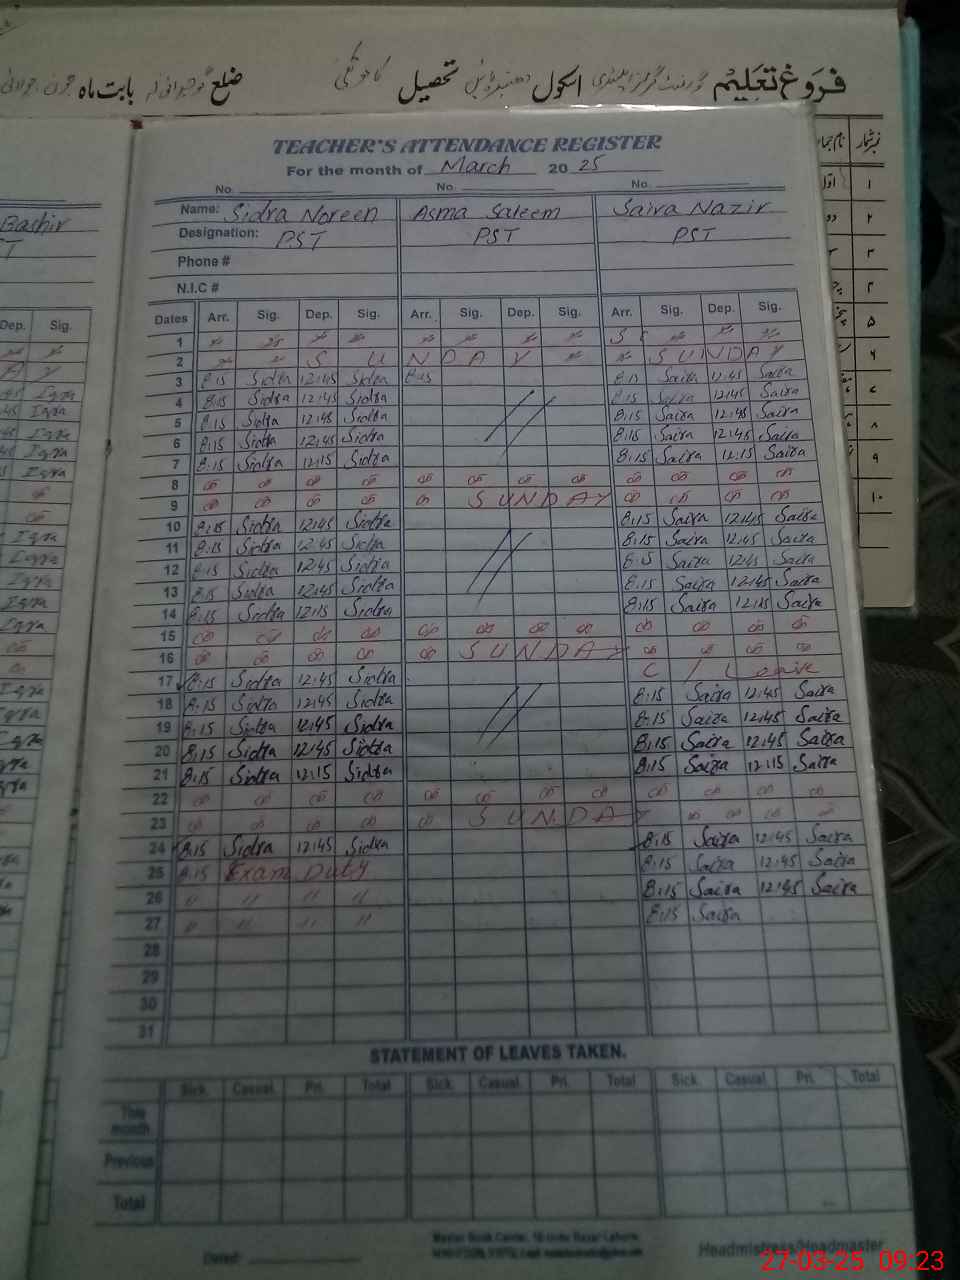 فروغ تعلیم اسکول تحصیل ضلع بابت ماہ جون، جولائی
TEACHER'S ATTENDANCE REGISTER
For the month of March 20 25
No. No. No.
Name: Sidra Noreen Asma Saleem Saira Nazir
Designation: PST PST PST
Phone #
N.I.C #
Dates Arr. Sig. Dep. Sig. Arr. Sig. Dep. Sig. Arr. Sig. Dep. Sig.
1
2 S U N D A Y S U N D A Y
3 8:15 Sidra 12:45 Sidra 8:15 8:15 Saira 12:45 Saira
4 8:15 Sidra 12:45 Sidra 8:15 Saira 12:45 Saira
5 8:15 Sidra 12:45 Sidra 8:15 Saira 12:45 Saira
6 8:15 Sidra 12:45 Sidra 8:15 Saira 12:45 Saira
7 8:15 Sidra 12:15 Sidra 8:15 Saira 12:15 Saira
8
9 S U N D A Y
10 8:15 Sidra 12:45 Sidra 8:15 Saira 12:45 Saira
11 8:15 Sidra 12:45 Sidra 8:15 Saira 12:45 Saira
12 8:15 Sidra 12:45 Sidra 8:15 Saira 12:45 Saira
13 8:15 Sidra 12:45 Sidra 8:15 Saira 12:45 Saira
14 8:15 Sidra 12:15 Sidra 8:15 Saira 12:15 Saira
15
16 S U N D A Y
17 8:15 Sidra 12:45 Sidra C / Leave
18 8:15 Sidra 12:45 Sidra 8:15 Saira 12:45 Saira
19 8:15 Sidra 12:45 Sidra 8:15 Saira 12:45 Saira
20 8:15 Sidra 12:45 Sidra 8:15 Saira 12:45 Saira
21 8:15 Sidra 12:15 Sidra 8:15 Saira 12:15 Saira
22
23 S U N D A Y
24 8:15 Sidra 12:45 Sidra 8:15 Saira 12:45 Saira
25 8:15 Exam Duty 8:15 Saira 12:45 Saira
26 " " " " 8:15 Saira 12:45 Saira
27 " " " " 8:15 Saira
28
29
30
31
STATEMENT OF LEAVES TAKEN.
Sick. Casual. Pri. Total Sick. Casual. Pri. Total Sick. Casual. Pri. Total
This month
Previous
Total
Master Book Center, 16 Urdu Bazar Lahore.
Dated: Headmistress/Headmaster
27-03-25 09:23